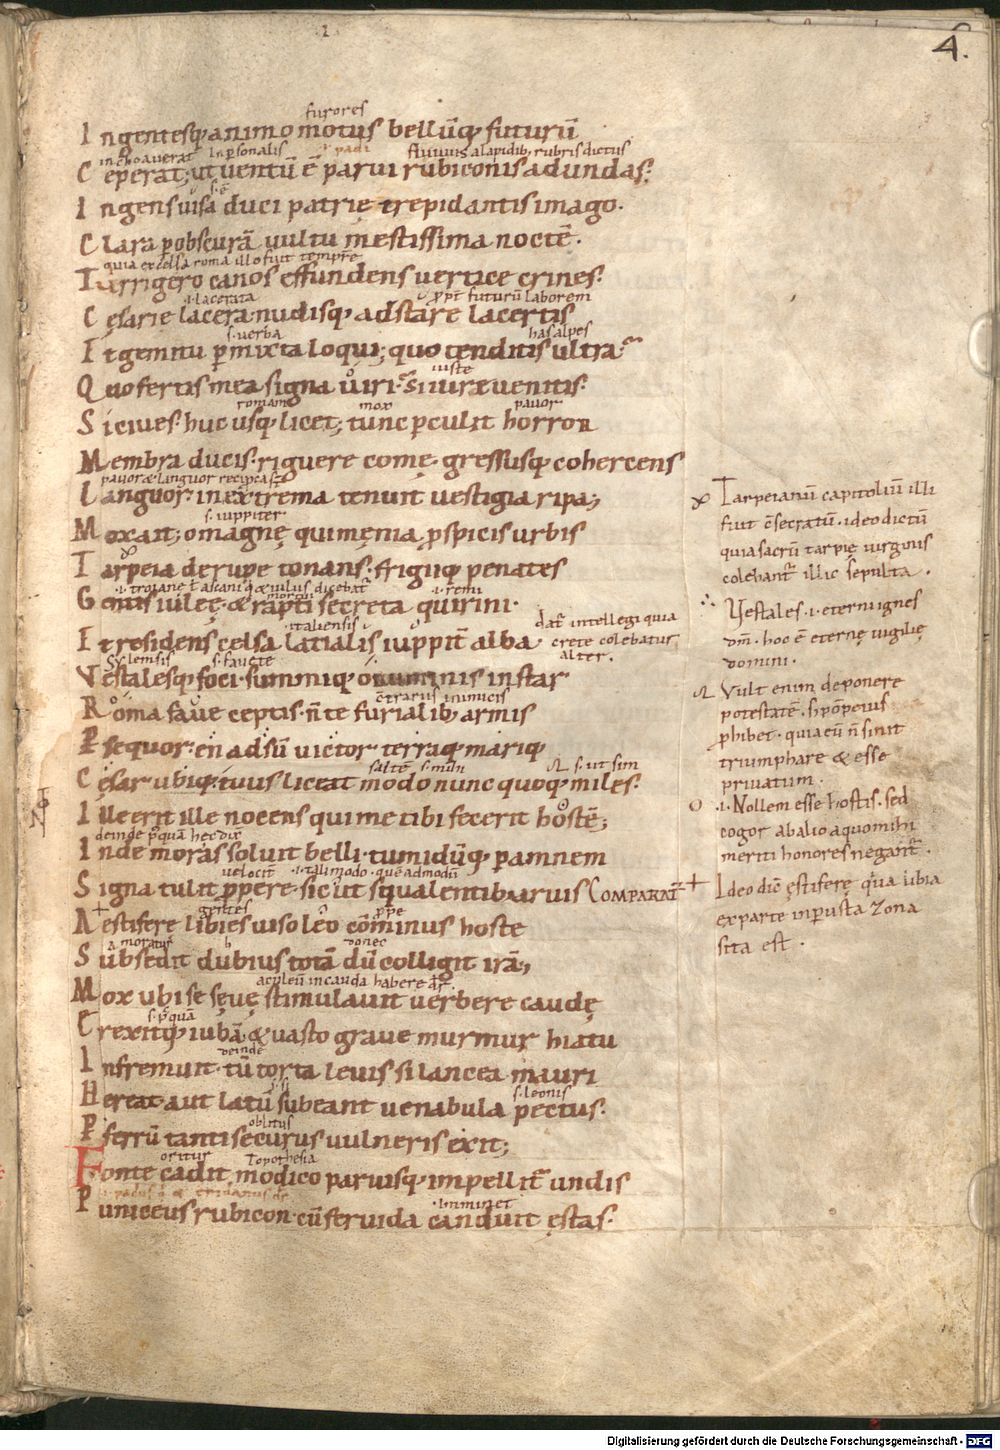 4.
furores
Ingentesq; animo motus bellūq; futurū
inchoaverat inpersonalis i padi fluvius a lapidib; rubris dictus
Ceperat; ut ventū ē parvi rubiconis ad undas:
s. ē
Ingens visa duci patrię trepidantis imago.
Clara p obscurā vultu mestissima noctē.
quia excelsa roma illo fuit tempre
Turrigero canos effundens vertice crines:
.i. lacerata ppt futurū laborem
Cęsarie lacera nudisq; adstare lacertis
s. verba has alpes
Et gemitu pmixta loqui; quo tenditis ultra
iuste
Quo fertis mea signa viri? si iure venitis:
romam mox pavor
Si cives. huc usq; licet; tunc pculit horror
Membra ducis. riguere comę. gressusq; cohercens
pavoræ languor recipcas
Languor. in extrema tenuit vestigia ripa;
s. iuppiter
Mox ait; o magnę qui męnia pspicis urbis
Tarpeia de rupe tonans: frigiiq; penates
.i. troiane .i. remi
Gentis iuleę. & rapti secreta quirini.
italiensis
Et residens celsa latialis iuppit alba
dat intellegi quia
crete colebatur
alter.
s. favete
Vestalesq; foci. summiq; o numinis instar
cętrarus inimicis
Roma fave ceptis. n̄ te furialib; armis
Psequor. en adsū victor terraq; mariq;
saltē s. ut sim
Cęsar ubiq; tuus liceat modo nunc quoq; miles.
Ille erit ille nocens qui me tibi fecerit hostē;
deinde pquā hec dix
Inde moras solvit belli. tumidūq; p amnem
velocit .i. talimodo. quēadmodū
Signa tulit ppere. sicut squalentib; arvis COMPARAT
Aestifere libies viso leo cōminus hoste
moratur donec
Subsedit dubius totā dū colligit irā;
aculeū in cauda habere
Mox ubi se sęvę stimulavit verbere caudę
s. pquā
Erexitq; iubā. & vasto grave murmur hiatu
deinde
Infremuit. tū torta levis si lancea mauri
s. leonis
Hereat aut latū subeant venabula pectus.
oblitus
P ferrū tanti securus vulneris exit;
oritur Topothesia
Fonte cadit modico parvisq; impellit undis
inminet
Puniceus rubicon. cū fervida canduit ęstas.
Tarpeianū capitoliū illi
fuit cōsecratū. ideo dictū
quia sacrū tarpię virginis
colebant illic sepulta.
Vestales .i. eterni ignes
dm̄. hoc ē eternę vigilię
domini.
Vult enim deponere
potestatē. s. pōpeius
phibet. quia eū n̄ sinit
triumphare & esse
privatum.
.i. Nollem esse hostis. sed
cogor ab alio a quo mihi
meriti honores negant.
Ideo dic̄ ęstiferę quia libia
ex parte inpusta zona
sita est.
Digitalisierung gefördert durch die Deutsche Forschungsgemeinschaft - DFG